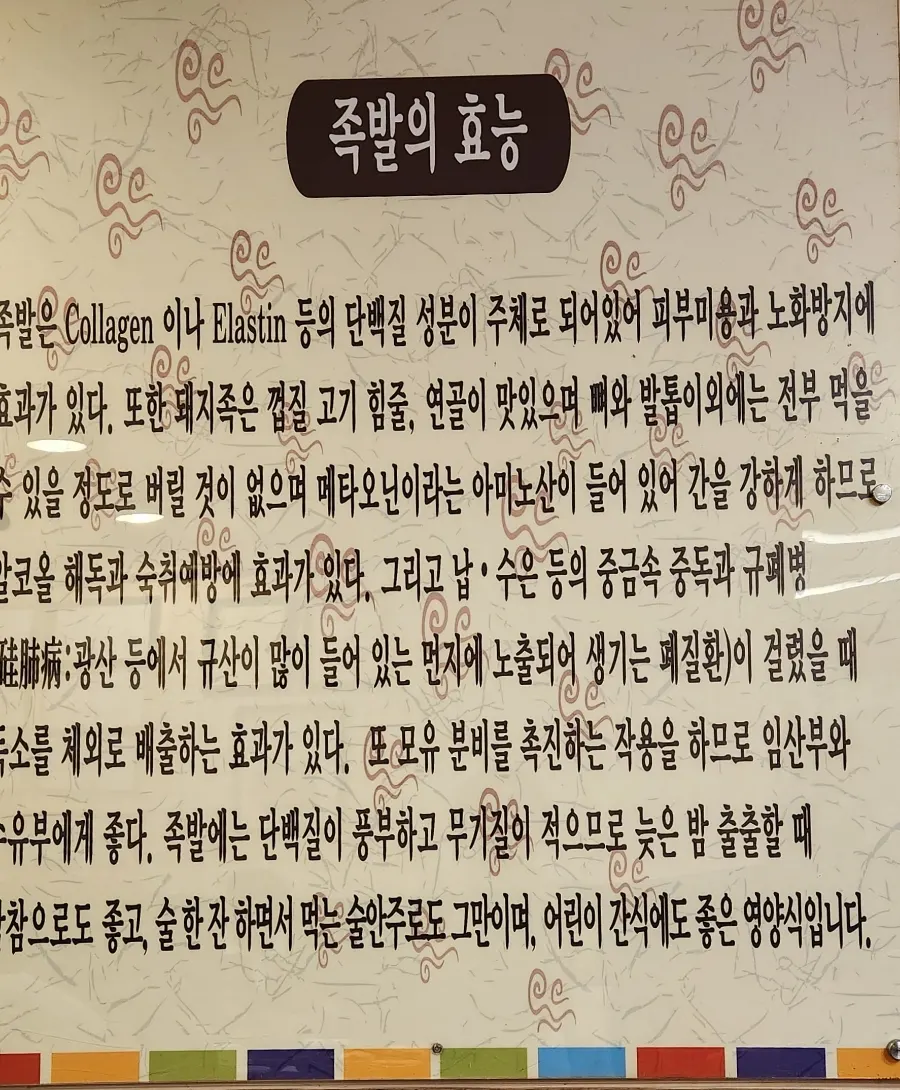 족발의 효능
족발은 Collagen 이나 Elastin 등의 단백질 성분이 주체로 되어있어 피부미용과 노화방지에
효과가 있다. 또한 돼지족은 껍질 고기 힘줄, 연골이 맛있으며 뼈와 발톱이외에는 전부 먹을
수 있을 정도로 버릴 것이 없으며 메타오닌이라는 아미노산이 들어 있어 간을 강하게 하므로
알코올 해독과 숙취예방에 효과가 있다. 그리고 납·수은 등의 중금속 중독과 규폐병
硅肺病:광산 등에서 규산이 많이 들어 있는 먼지에 노출되어 생기는 폐질환)이 걸렸을 때
독소를 체외로 배출하는 효과가 있다. 또 모유 분비를 촉진하는 작용을 하므로 임산부와
수유부에게 좋다. 족발에는 단백질이 풍부하고 무기질이 적으므로 늦은 밤 출출할 때
밤참으로도 좋고, 술 한 잔 하면서 먹는 술안주로도 그만이며, 어린이 간식에도 좋은 영양식입니다.